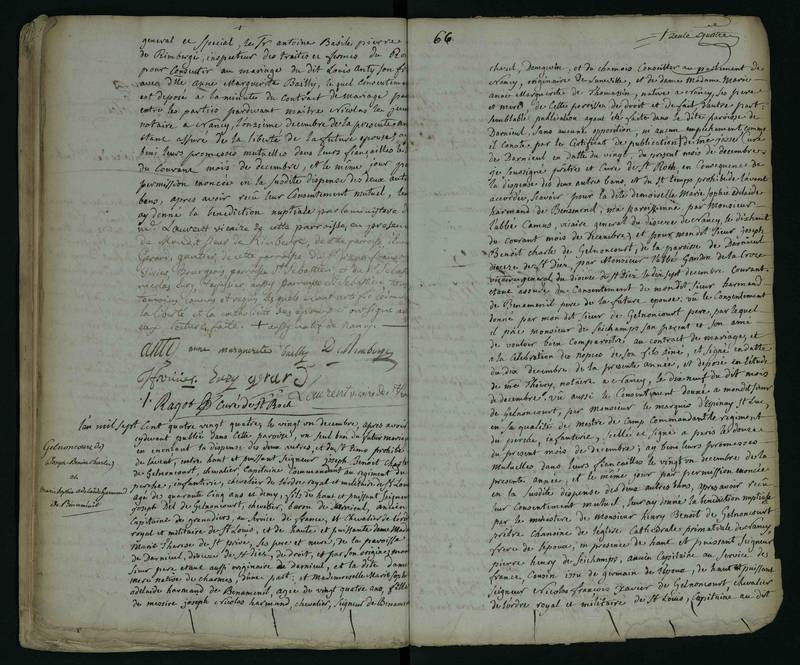 general et special, le Sr antoine Basile pierre
de Rimberge, inspecteur des traites et fermes du Roi
pour Consentir au mariage du dit Louis Anty son f
avec Dlle anne Marguerite Bailly, lequel Consentement
est deposé a la minutte du Contract de mariage pas
entre les parties pardevant maitre Nicolas
notaire a Nancy, l'onzieme decembre de la presente an
étant assuré de la liberté de la future epouse, ay
beni leurs promesses mutuelles dans leurs fiançailles le
du Courant mois de decembre, et le même jour par
permission enoncée en la suditte dispense des deux autres
bans, apres avoir reçu leur Consentement mutuel, leur
ay donné la benediction nuptiale par le ministere d
mr Laurent vicaire de cette parroisse, en presence
du susdit sieur de Rimberge, de cette parroisse,
Gerard, de cette parroisse, du Sr jean françois
Bourgeois parroisse St Sebastien, et du Sr
nicolas aussi parroisse St Sebastien, tous
temoins connus et requis
la liberté et la catholicité des epoux, et ont signé av
nous lecture faite. + aussi natif de nancy.
anti anne marguerite bailly De Rimberge
gerard
Laurent vicaire de St
f. Ragot Curé de St Roch
l'an mil sept Cent quatre vingt quatre, le vingt un decembre, apres avoir
cydevant publié dans Cette paroisse, un seul ban du futur mariage
en enontant la dispense des deux autres, et du tems prohibé
de l'avent, entre haut et puissant Seigneur joseph Benoît Charles
de Gelnoncourt, chevalier, Capitaine Commandant au regiment du
perche, infanterie, chevalier de l'ordre royal et militaire de St Louis
agé des quarante Cinq ans et demy, fils de haut et puissant Seigneur
joseph de Gelnoncourt, chevalier, baron de Darnieul, ancien
Capitaine de grenadiers, au service de france, et Chevalier de l'ordre
royal et militaire de St Louis, et de haute et puissante dame Mad
Marie Therese de St privé, ses pere et mere, de la parroisse
de Darnieul, diocese de St diez, de droit, et par son origine, mon
Sieur pere etant aussi originaire de darnieul, et la dite dame
mere native de charmes, d'une part, et Mademoiselle Marie Sophie
adelaide harmand de Benamenil, agée de vingt quatre ans, fille
de messire joseph Nicolas harmand, chevalier, Seigneur de Benamenil
Gelnoncourt
joseph Benoit Charles
et
Marie Sophie adelaide harmand
de Benamenil
66
Trente quatre
chazel, et du chamois Conseiller au parlement de
Nancy, originaire de Luneville, et de dame Madame Marie
anne Marguerite de Thomassin, native de Nancy, ses pere
et mere, de Cette parroisse de droit et de fait d'autre part,
semblable publication ayant été faite dans la dite paroisse de
Darnieul, sans aucune opposition, ni aucun empêchement comme
il Conste par le Certificat de publication de Mre josse Curé
de Darnieul en datte du vingt, du present mois de decembre,
je soussigné prêtre et Curé de St Roch en Consequence de
la dispense des deux autres bans, et du tems prohibé de l'avent
accordée, scavoir pour la dite demoiselle Marie Sophie adelaide
harmand de Benamenil, par Monsieur
l'abbé Camus, vicaire general du diocese de Nancy, le dixhuit
du Courant mois de decembre, et pour mondit Sieur joseph
Benoît charles de Gelnoncourt, de la parroisse de Darnieul
diocese de St Diez, par Monsieur l'abbé Gandin de la Croze
vicaire general du diocese de St Diez le dix sept decembre Courant.
étant assuré du Consentement de mondit Sieur harmand
de Benamenil pere de la future epouse, vû le Consentement
donné par mon dit Sieur de Gelnoncourt pere, par lequel
il prie monsieur de Seichamps son parent et son ami
de vouloir bien Comparoître au contract de mariage, et
a la Celebration des nopces de son fils ainé, et signé en datte
du dix decembre de la presente année, et deposé en l'étude
de me Thiery, notaire a Nancy, le dix neuf du dit mois
de decembre. vû aussi le Consentement donné a mondit Sieur
de Gelnoncourt, par Monsieur le marquis d'Epinay St Luc,
en sa qualité de mestre de Camp Commandant le regiment
du perche, infanterie, scellé et signé a paris le douze
du present mois de decembre; ay beni leurs promesses
Mutuelles dans leurs fiançailles le vingt un decembre de la
presente année, et le même jour par permission enoncée
en la Suditte dispense des deux autres bans, apres avoir reçu
leur Consentement mutuel, leur ay donné la benediction nuptiale
par le ministere de Monsieur henry Benoît de Gelnoncourt
prêtre Chanoine de l'eglise Cathédrale primatiale de Nancy,
frere de l'epoux, en presence de haut et puissant Seigneur
pierre henry de Seichamps, ancien Capitaine au Service de
france, Cousin issu de germain de l'epoux, de haut et puissant
Seigneur Nicolas François Xavier de Gelnoncourt, chevalier
de l'ordre royal et militaire de St Louis, Capitaine au dit